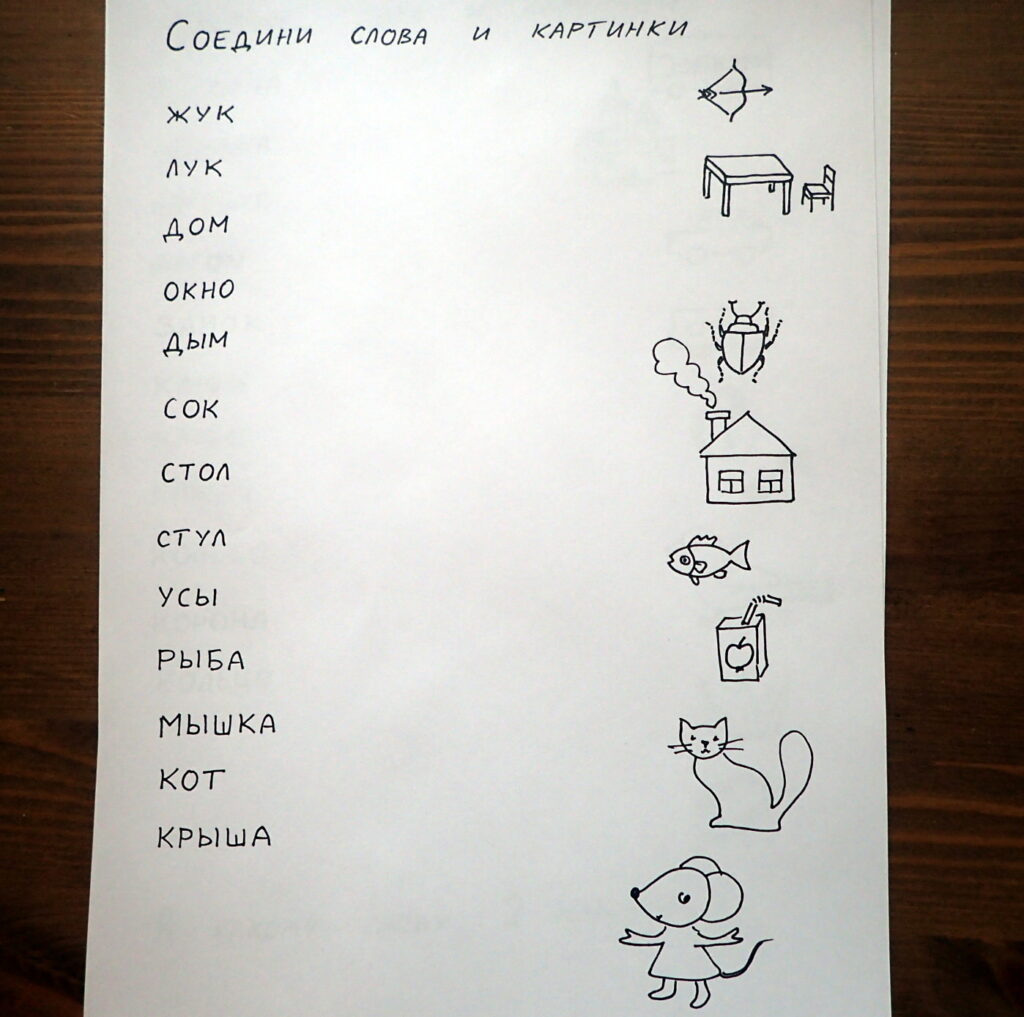 Соедини слова и картинки
жук
лук
дом
окно
дым
сок
стол
стул
усы
рыба
мышка
кот
крыша